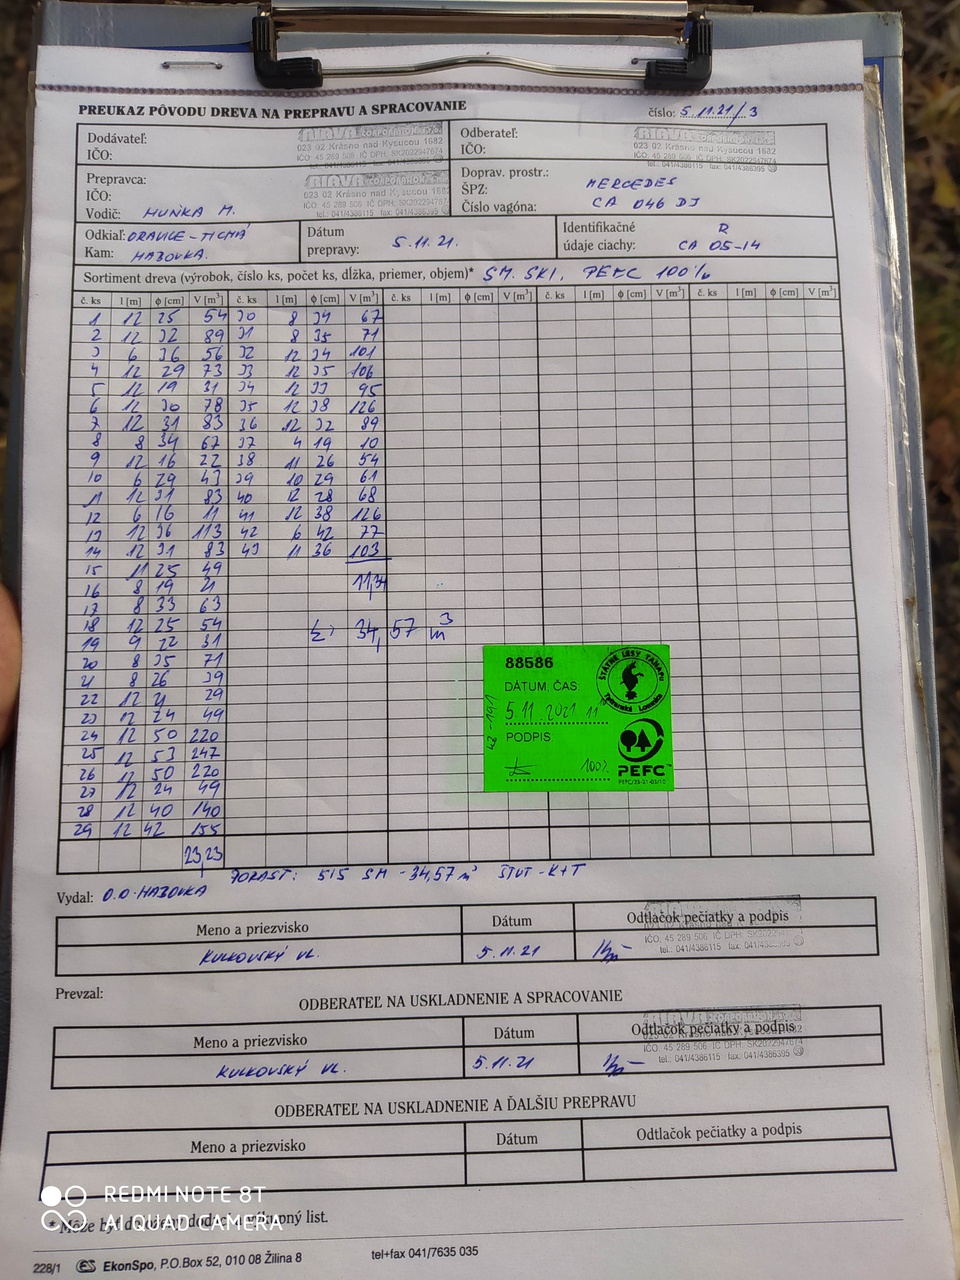 PREUKAZ PÔVODU DREVA NA PREPRAVU A SPRACOVANIE
číslo: 5.11.21/3
Dodávateľ:
IČO:
023 02 Krásno nad Kysucou 1682
Odberateľ:
IČO:
023 02 Krásno nad Kysucou 1682
Prepravca:
IČO:
Vodič: HUŇKA M.
023 02 Krásno nad Kysucou 1682
IČO: 45 289 506
tel.: 041/4386115 fax: 041/4386395
Doprav. prostr.:
ŠPZ: MERCEDES
Číslo vagóna: CA 046 DJ
Odkiaľ: ORAVICE-TICHÁ
Kam: HABOVKA.
Dátum
prepravy: 5.11.21.
Identifikačné R
údaje ciachy: CA 05-14
Sortiment dreva (výrobok, číslo ks, počet ks, dĺžka, priemer, objem)* SM. SKI, PEFC 100%
č. ks l [m] ϕ [cm] V [m³] č. ks l [m] ϕ [cm] V [m³] č. ks l [m] ϕ [cm] V [m³] č. ks l [m] ϕ [cm] V [m³] č. ks l [m] ϕ [cm] V [m³]
1 12 25 54 30 8 34 67
2 12 32 89 31 8 35 71
3 6 36 56 32 12 34 101
4 12 29 73 33 12 35 106
5 12 19 31 34 12 33 95
6 12 30 78 35 12 38 126
7 12 31 83 36 12 32 89
8 8 34 67 37 4 19 10
9 12 16 22 38 11 26 54
10 6 29 43 39 10 29 61
11 12 31 83 40 12 28 68
12 6 16 11 41 12 38 126
13 12 36 113 42 6 42 77
14 12 31 83 43 11 36 103
15 11 25 49
16 8 19 21 11,34
17 8 33 63
18 12 25 54 34,57 m³
19 9 22 31
20 8 35 71
21 8 26 39
22 12 21 29
23 12 24 49
24 12 50 220
25 12 53 247
26 12 50 220
27 12 24 49
28 12 40 140
29 12 42 155
23,23
88586
ŠTÁTNE LESY TANAPu
Tatranská Lomnica
DÁTUM, ČAS:
5.11.2021 11
PODPIS
100%
PEFC™
PORAST: 515 SM -34,57 m³ ŠTVT-K+T
Vydal: O.O. HABOVKA
Meno a priezvisko Dátum Odtlačok pečiatky a podpis
KULKOVSKÝ VL. 5.11.21
IČO: 45 289 506
tel.: 041/4386115 fax: 041/4386395
Prevzal:
ODBERATEĽ NA USKLADNENIE A SPRACOVANIE
Meno a priezvisko Dátum Odtlačok pečiatky a podpis
KULKOVSKÝ VL. 5.11.21
IČO: 45 289 506 IČ DPH: SK2022947674
tel.: 041/4386115 fax: 041/4386395
ODBERATEĽ NA USKLADNENIE A ĎALŠIU PREPRAVU
Meno a priezvisko Dátum Odtlačok pečiatky a podpis
REDMI NOTE 8T
AI QUAD CAMERA
* Môže byť výkupný list.
228/1 ES EkonSpo, P.O.Box 52, 010 08 Žilina 8 tel+fax 041/7635 035